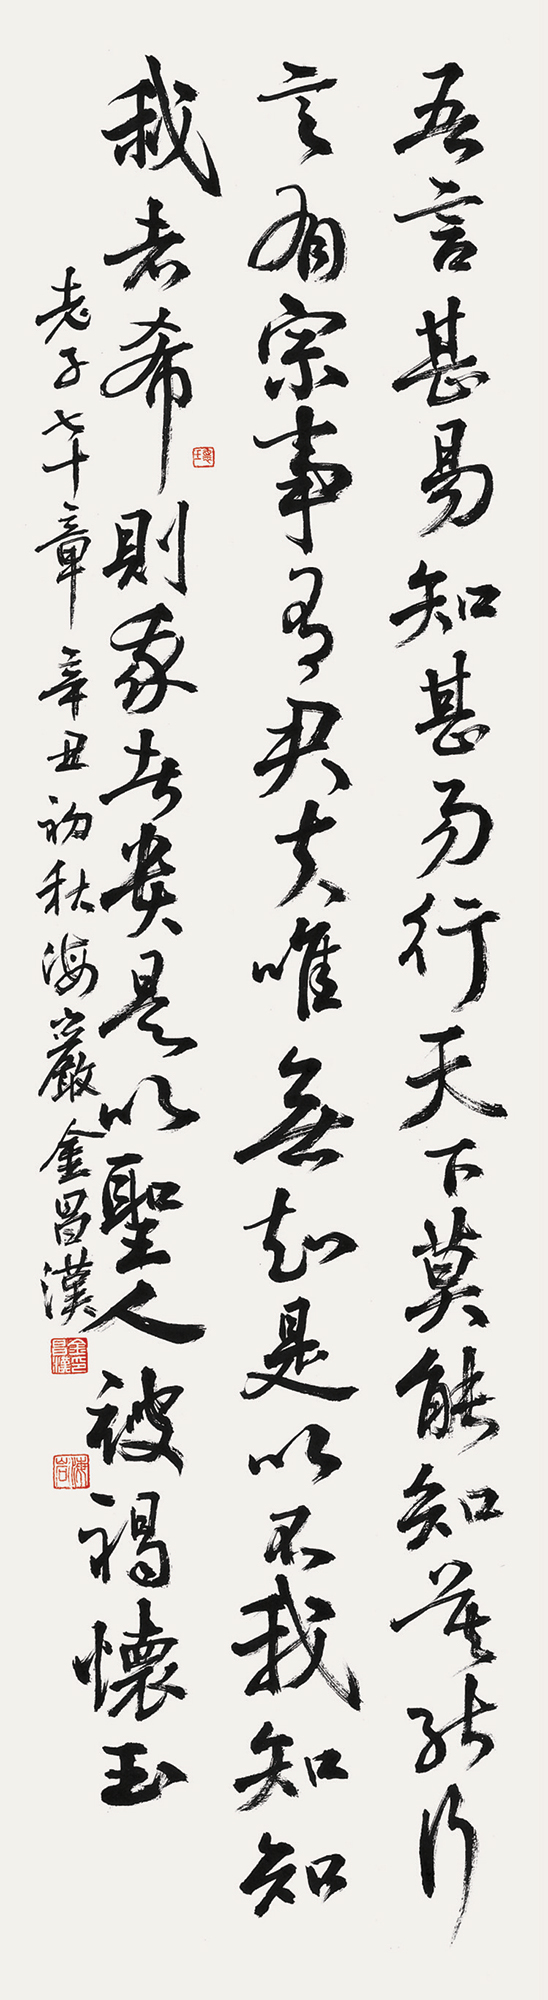 吾言甚易知甚易行天下莫能知莫能行
言有宗事有君夫唯無知是以不我知知
我者希則我者貴是以聖人被褐懷玉
老子七十章 辛丑初秋 海巖 金昌漢
金昌漢印